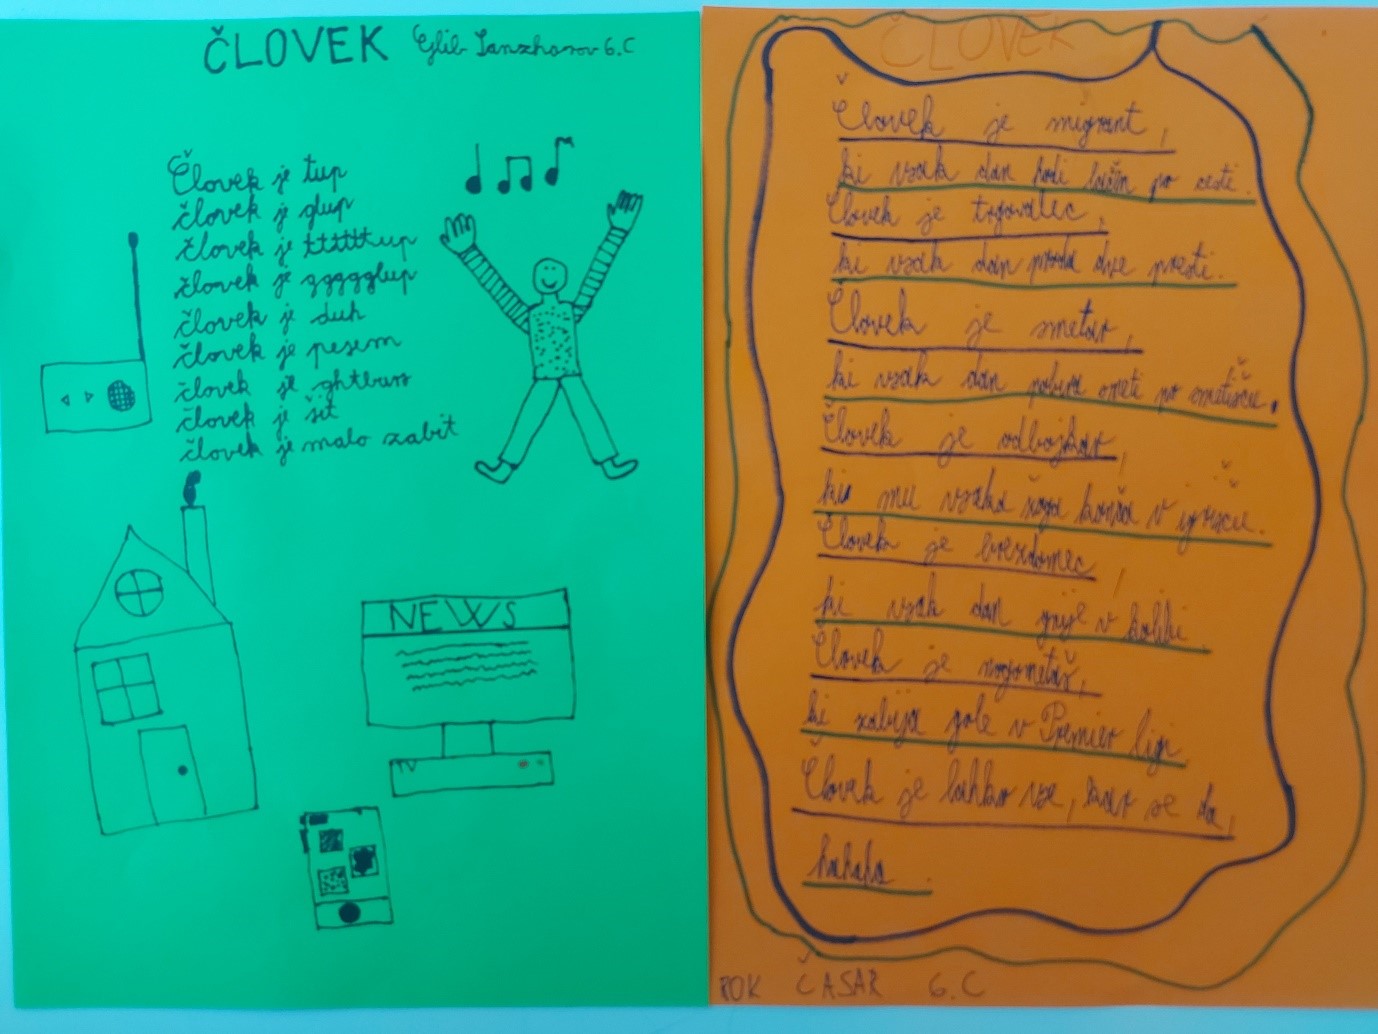 ČLOVEK Glib Sanzharov 6.C
Človek je tup
človek je glup
človek je ttttttup
človek je ggggglup
človek je duh
človek je pesem
človek je
človek je šit
človek je malo zabit
NEWS
TV
ČLOVEK
Človek je migrant,
ki vsak dan hodi lačen po cesti.
Človek je trgovalec,
ki vsak dan proda dve presti.
Človek je smetar,
ki vsak dan pobira smeti po smetišču.
Človek je odbojkar,
ki mu vsaka žoga konča v igrišču.
Človek je brezdomec,
ki vsak dan gnije v kolibi.
Človek je nogometaš,
ki zabija gole v Premier ligi.
Človek je lahko vse, kar se da,
hahaha.
ROK ČASAR 6.C